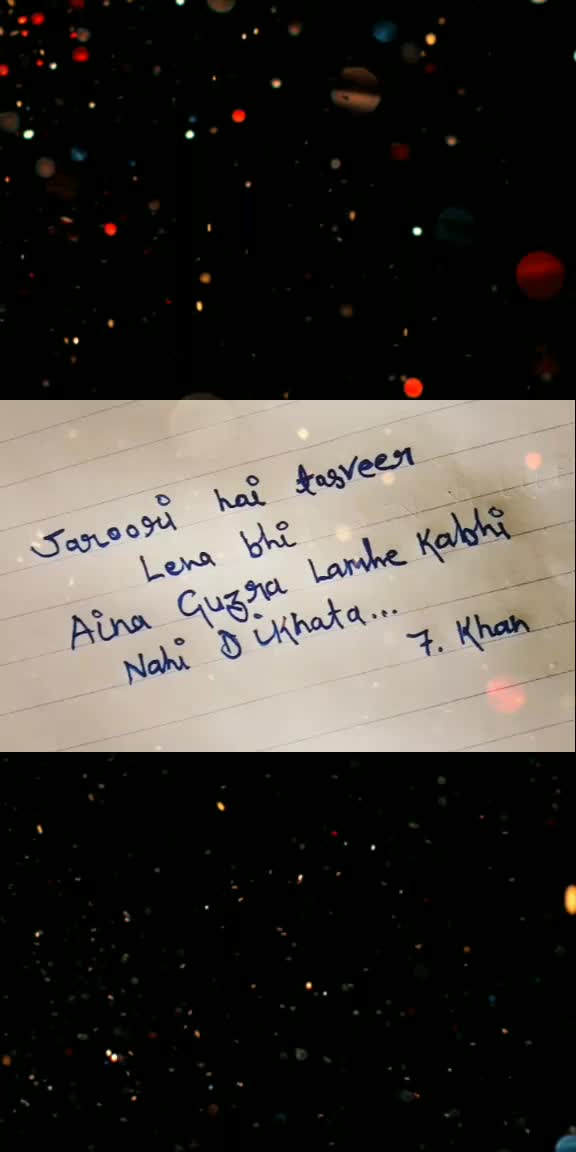 Jaroori hai tasveer
Lena bhi
Aina Guzra Lamhe Kabhi
Nahi Dikhata...
F. Khan